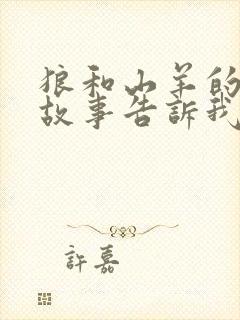 狼和山羊的
故事告訴我
許嘉